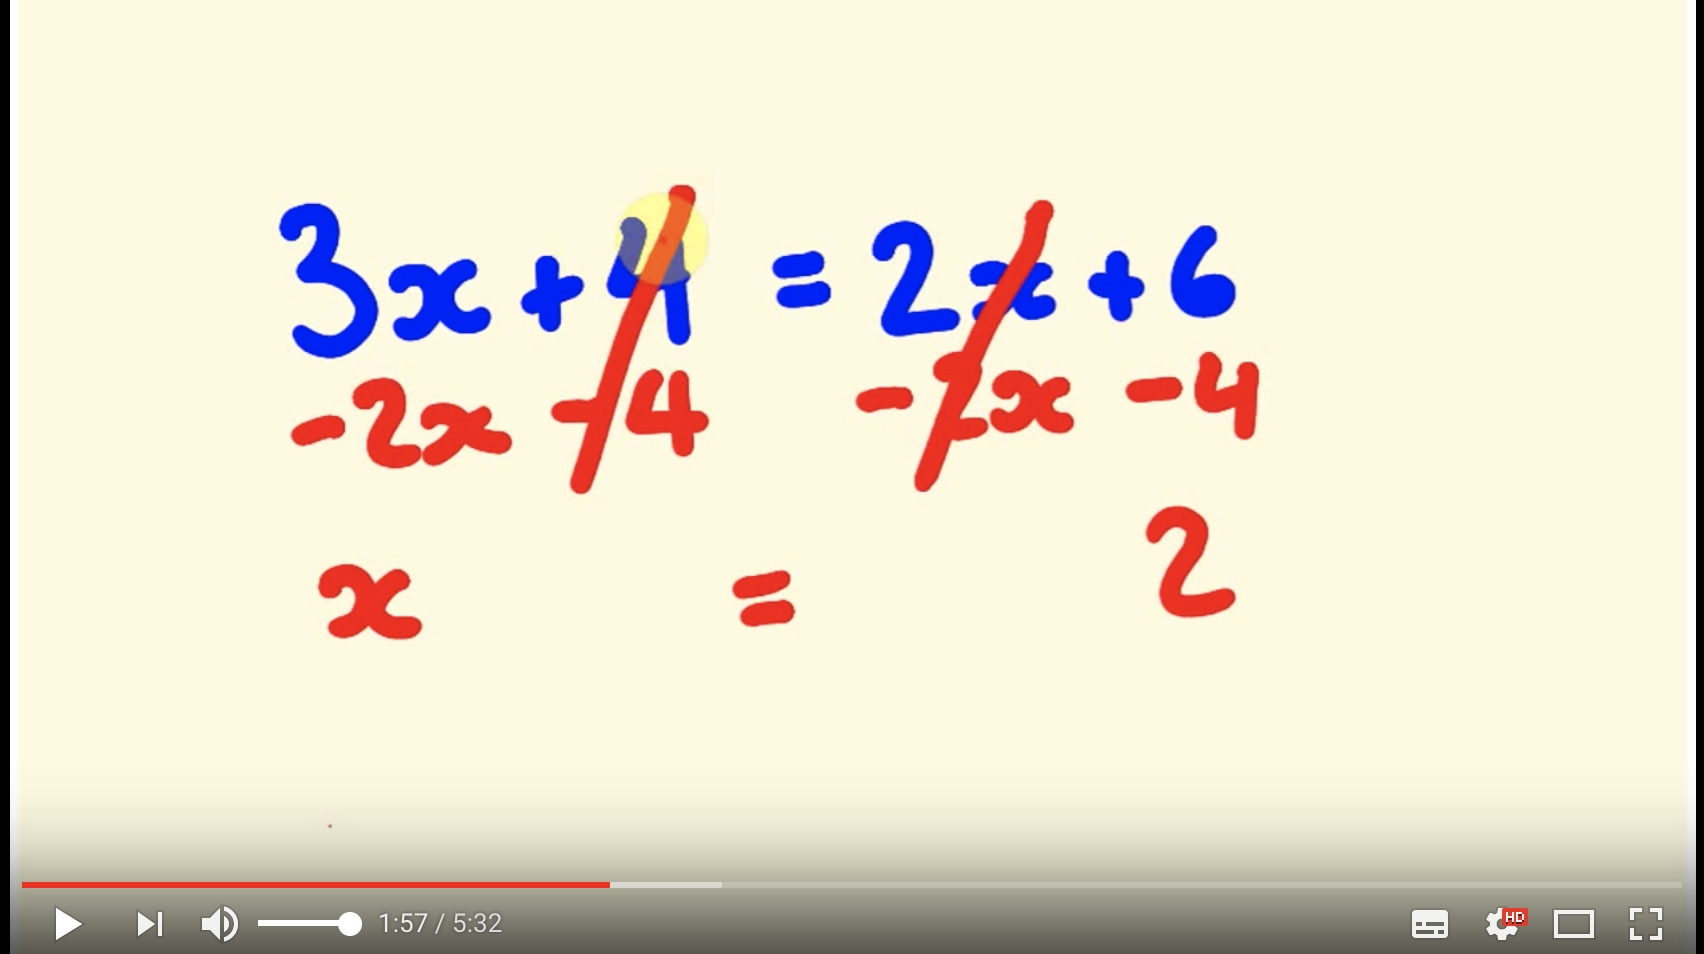 3x + 4 = 2x + 6
-2x - 4 -2x - 4
x = 2
1:57 / 5:32
HD